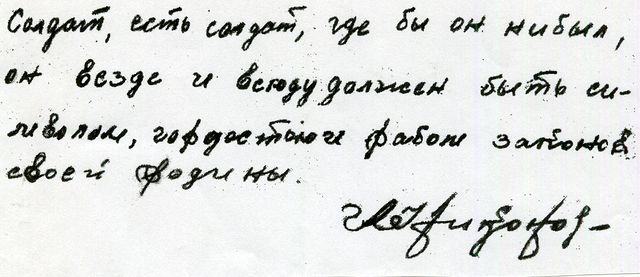 Солдат, есть солдат, где бы он нибыл,
он везде и всюду должен быть си-
мволом, гордостью и рабом законов
своей родины.